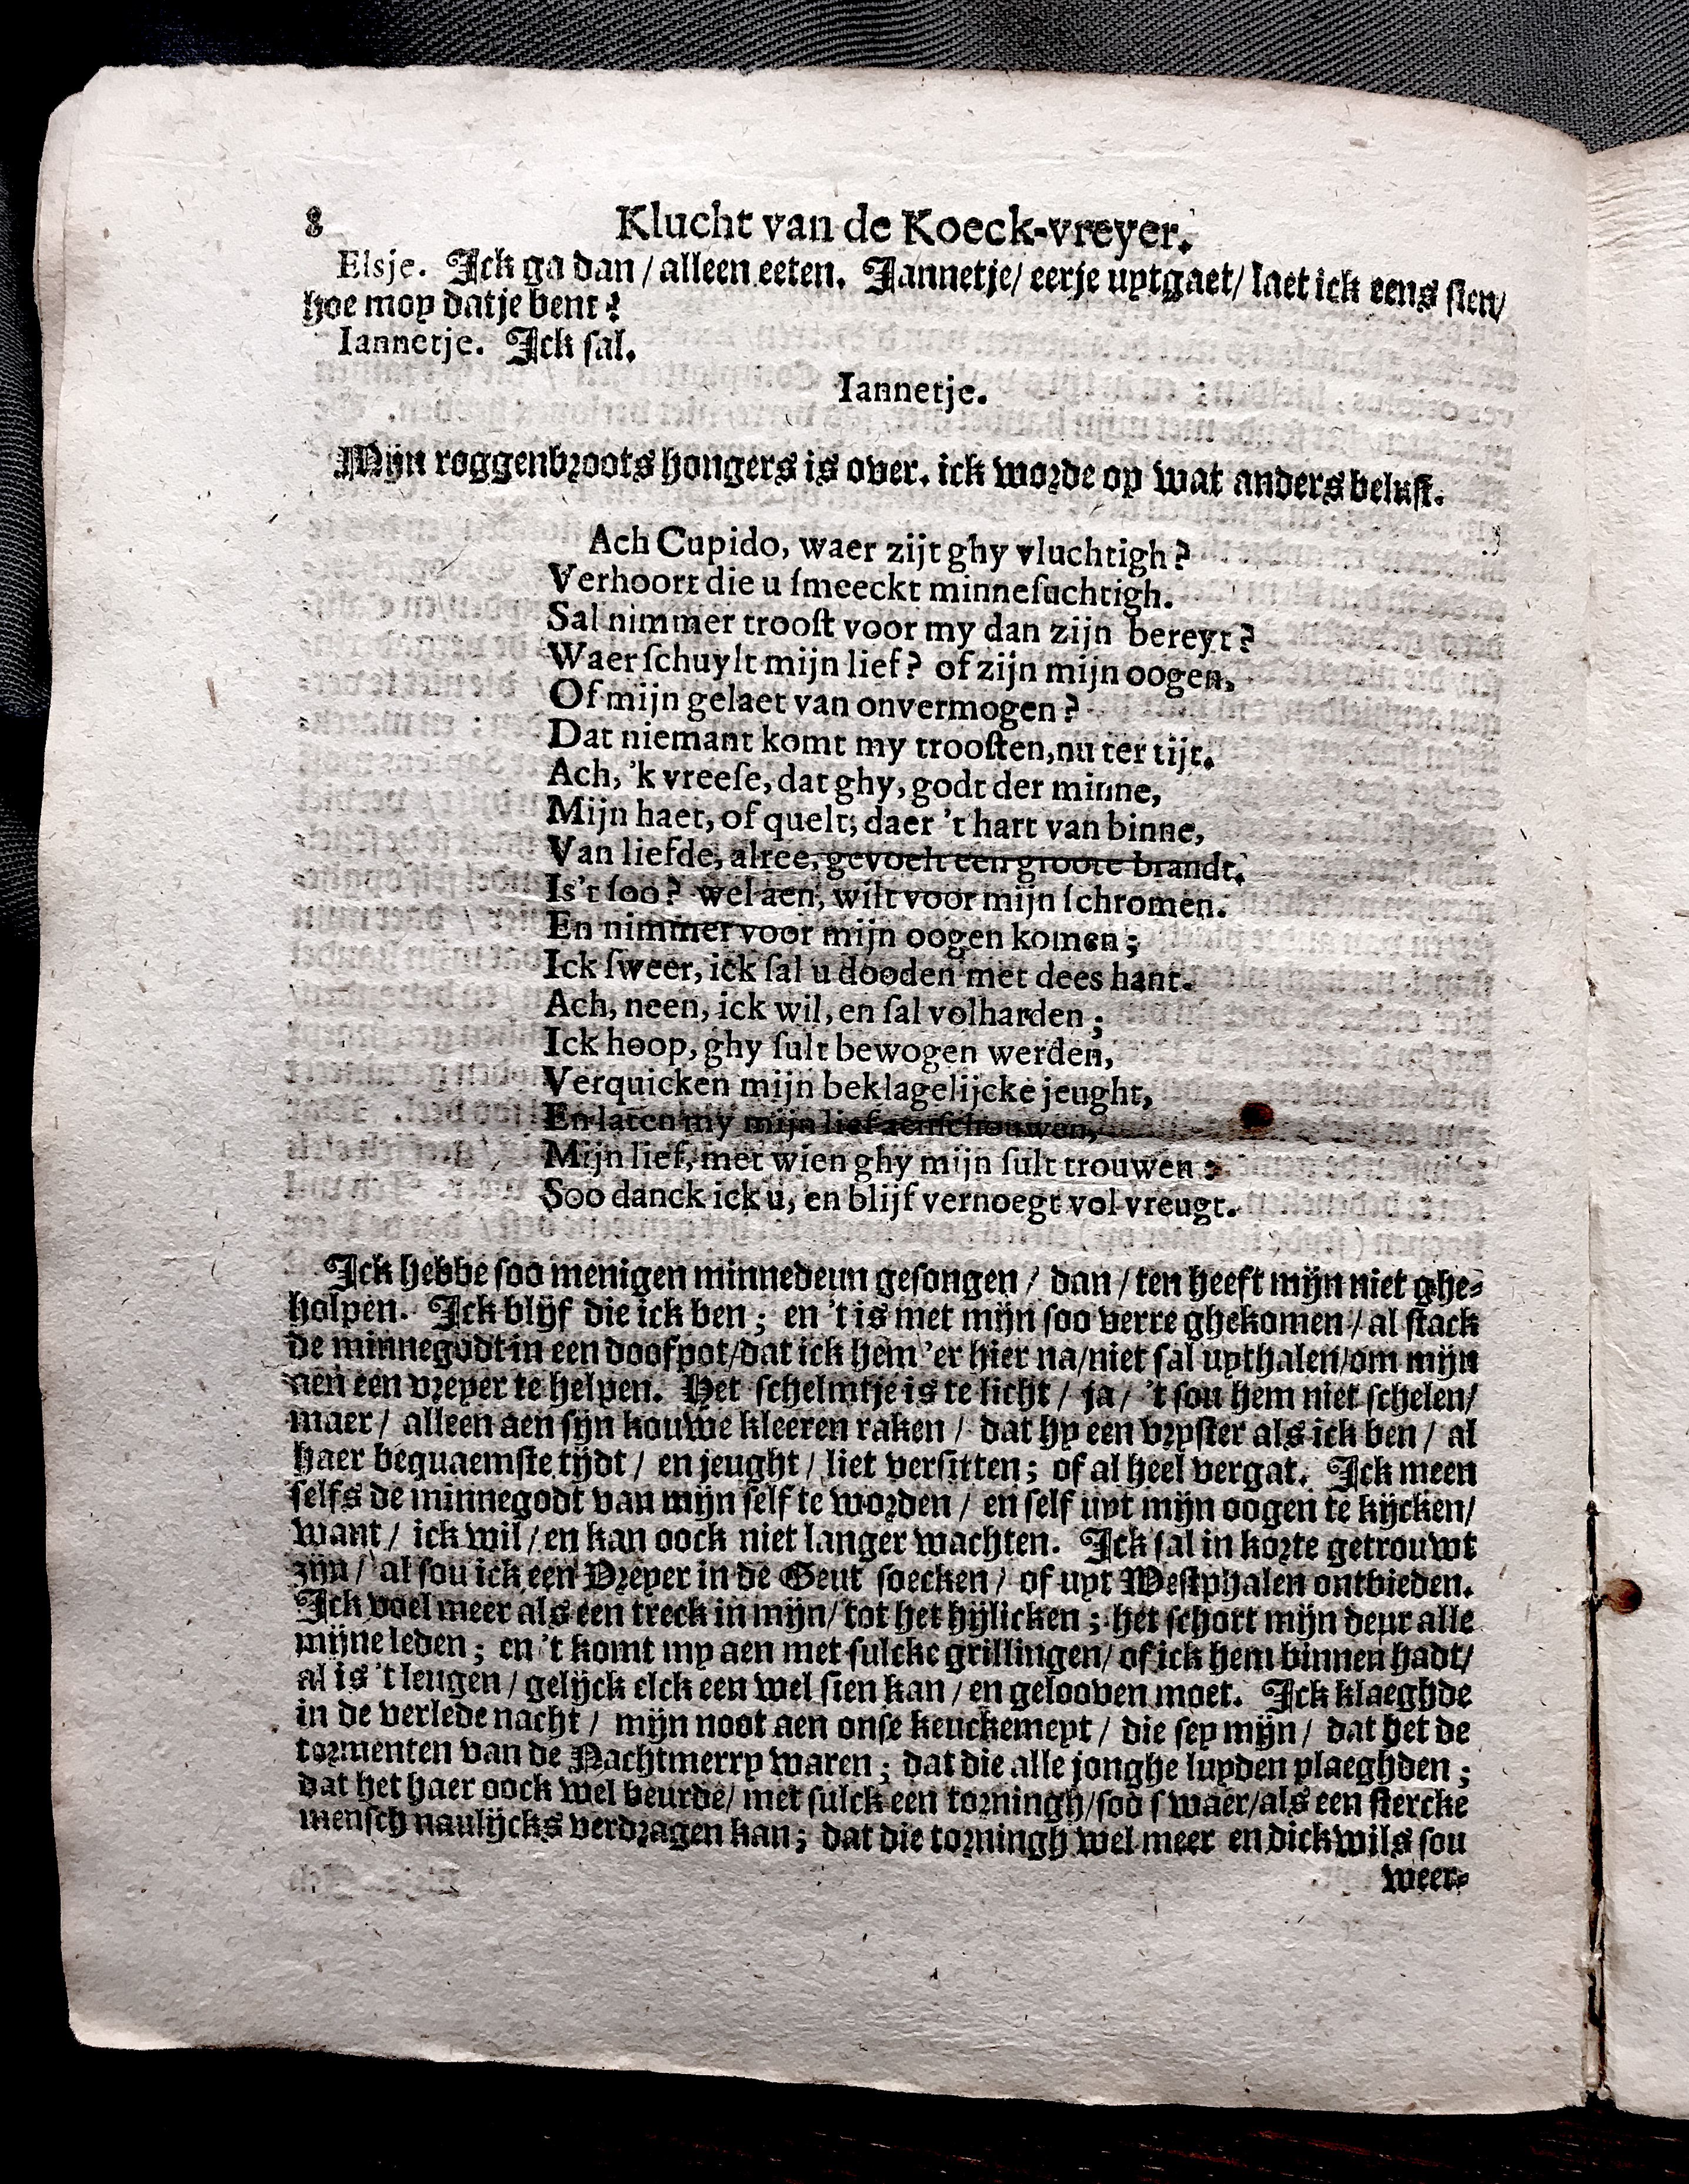 8 Klucht van de Koeck-vreyer.
Elsje. Ick ga dan / alleen eeten. Jannetje / eerje uytgaet / laet ick eens sien /
hoe moy datje bent?
Iannetje. Ick sal.
Iannetje.
Mijn roggenbroots hongers is over. ick worde op wat anders belust.
Ach Cupido, waer zijt ghy vluchtigh?
Verhoort die u smeeckt minnesuchtigh.
Sal nimmer troost voor my dan zijn bereyt?
Waer schuylt mijn lief? of zijn mijn oogen,
Of mijn gelaet van onvermogen?
Dat niemant komt my troosten, nu ter tijt.
Ach, 'k vreese, dat ghy, godt der minne,
Mijn haet, of quelt; daer 't hart van binne,
Van liefde, alree, gevoelt een groote brandt.
Is't soo? wel aen, wilt voor mijn schromen.
En nimmer voor mijn oogen komen;
Ick sweer, ick sal u dooden met dees hant.
Ach, neen, ick wil, en sal volharden;
Ick hoop, ghy sult bewogen werden,
Verquicken mijn beklagelijcke jeught,
En laten my mijn lief aenschouwen,
Mijn lief, met wien ghy mijn sult trouwen:
Soo danck ick u, en blijf vernoegt vol vreugt.
Ick hebbe soo menigen minnedeun gesongen / dan / ten heeft mijn niet ghe-
holpen. Ick blijf die ick ben; en 't is met mijn soo verre ghekomen / al stack
de minnegodt in een doofpot / dat ick hem 'er hier na / niet sal uythalen / om mijn
aen een vreyer te helpen. Het schelmtje is te licht / ja / 't sou hem niet schelen /
maer / alleen aen sijn kouwe kleeren raken / dat hy een vryster als ick ben / al
haer bequaemste tijdt / en jeught / liet versitten; of al heel vergat. Ick meen
selfs de minnegodt van mijn self te worden / en self uyt mijn oogen te kijcken /
want / ick wil / en kan oock niet langer wachten. Ick sal in korte getrouwt
zijn / al sou ick een Vreyer in de Geut soecken / of uyt Westphalen ontbieden.
Ick voel meer als een treck in mijn / tot het hijlicken; het schort mijn deur alle
mijne leden; en 't komt my aen met sulcke grillingen / of ick hem binnen hadt /
al is 't leugen / gelijck elck een wel sien kan / en gelooven moet. Ick klaeghde
in de verlede nacht / mijn noot aen onse keuckemeyt / die sey mijn / dat het de
tormenten van de Nachtmerry waren; dat die alle jonghe luyden plaeghden;
dat het haer oock wel beurde / met sulck een torningh / soo swaer / als een stercke
mensch naulijcks verdragen kan; dat die torningh wel meer en dickwils sou
weer-